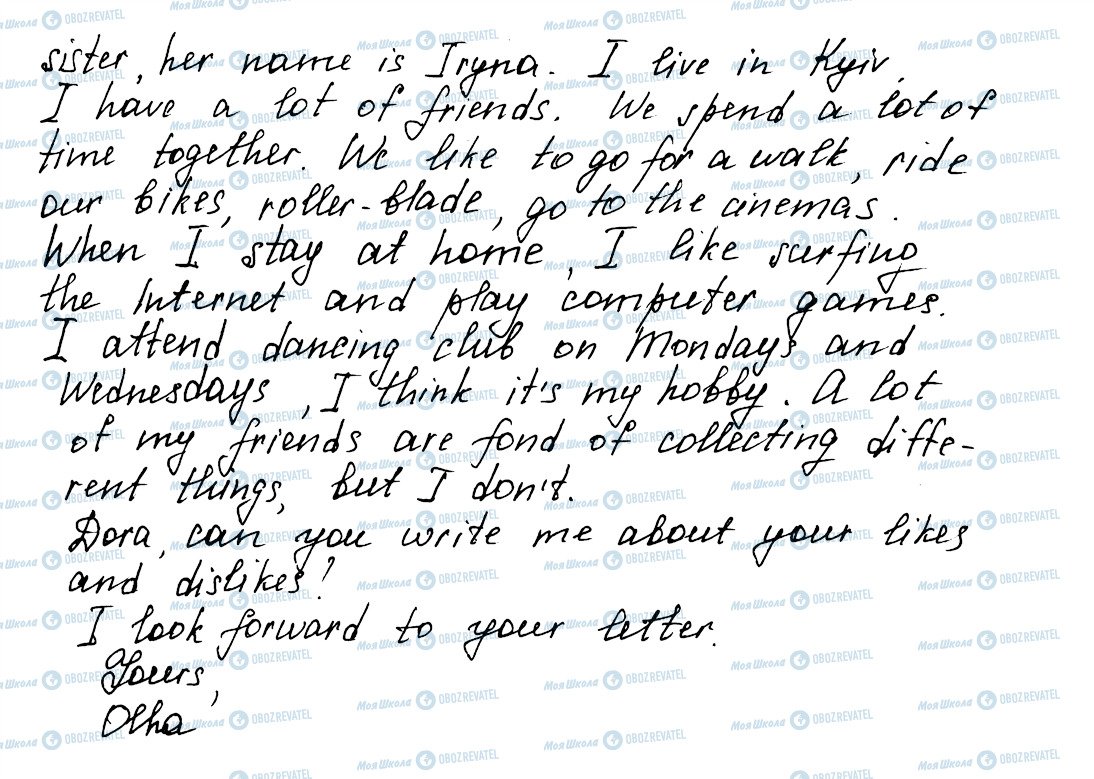 sister, her name is Iryna. I live in Kyiv.
I have a lot of friends. We spend a lot of
time together. We like to go for a walk, ride
our bikes, roller-blade, go to the cinemas.
When I stay at home, I like surfing
the Internet and play computer games.
I attend dancing club on Mondays and
Wednesdays, I think it's my hobby. A lot
of my friends are fond of collecting diffe-
rent things, but I don't.
Dora, can you write me about your likes
and dislikes?
I look forward to your letter.
Yours,
Olha